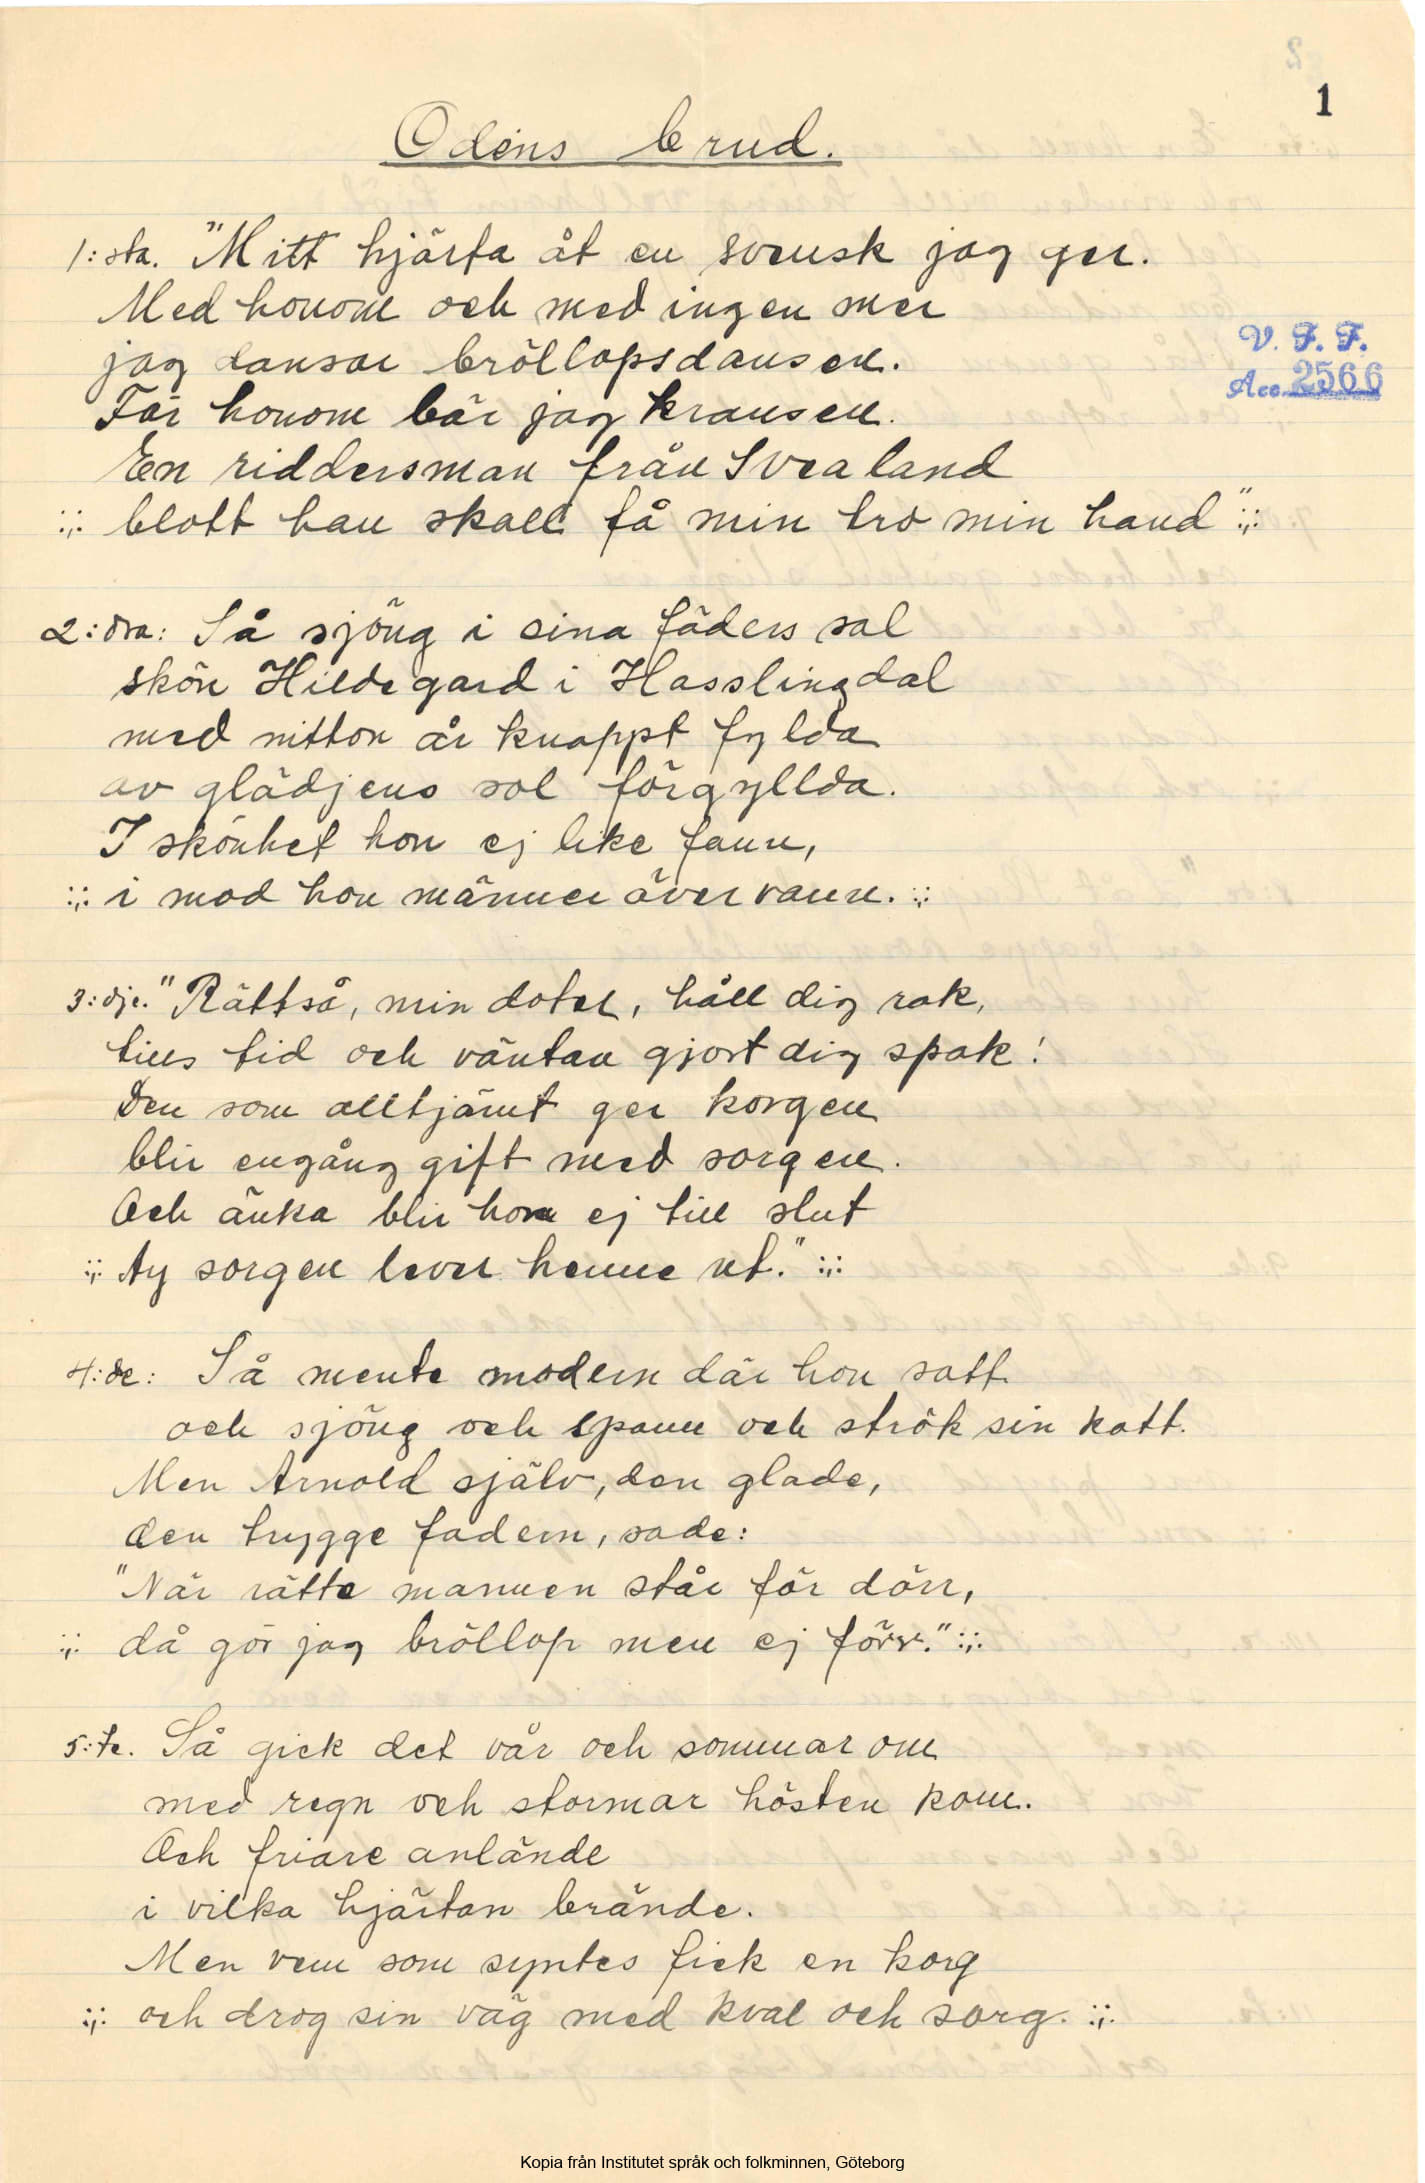 1
Odens brud.
1:sta. "Mitt hjärta åt en svensk jag ger.
Med honom och med ingen mer
jag dansar bröllopsdansen.
För honom bär jag kransen.
En riddersman från Svealand
:,: blott han skall få min tro min hand" :,:
V. F. F.
Acc. 2566
2:dra: Så sjöng i sina fäders sal
skön Hildegard i Hasslingdal
med nitton år knappt fylda
av glädjens sol förgyllda.
I skönhet hon ej like fann,
:,: i mod hon männer övervann. :,:
3:dje. "Rättså, min doter, håll dig rak,
tills tid och väntan gjort dig spak!
Den som alltjämt ger korgen
blir engång gift med sorgen.
Och änka blir hon ej till slut
:,: Ay sorgen lever henne ut." :,:
4:de: Så mente modern där hon satt
och sjöng och spann och strök sin katt.
Men Arnold själv, den glade,
den trygge fadern, sade:
"När rätta mannen står för dörr,
:,: då gör jag bröllop men ej förr." :,:
5:te. Så gick det vår och sommar om
med regn och stormar hösten kom.
Och friare anlände
i vilka hjärtan brände.
Men vem som syntes fick en korg
:,: och drog sin väg med kval och sorg. :,:
Kopia från Institutet språk och folkminnen, Göteborg